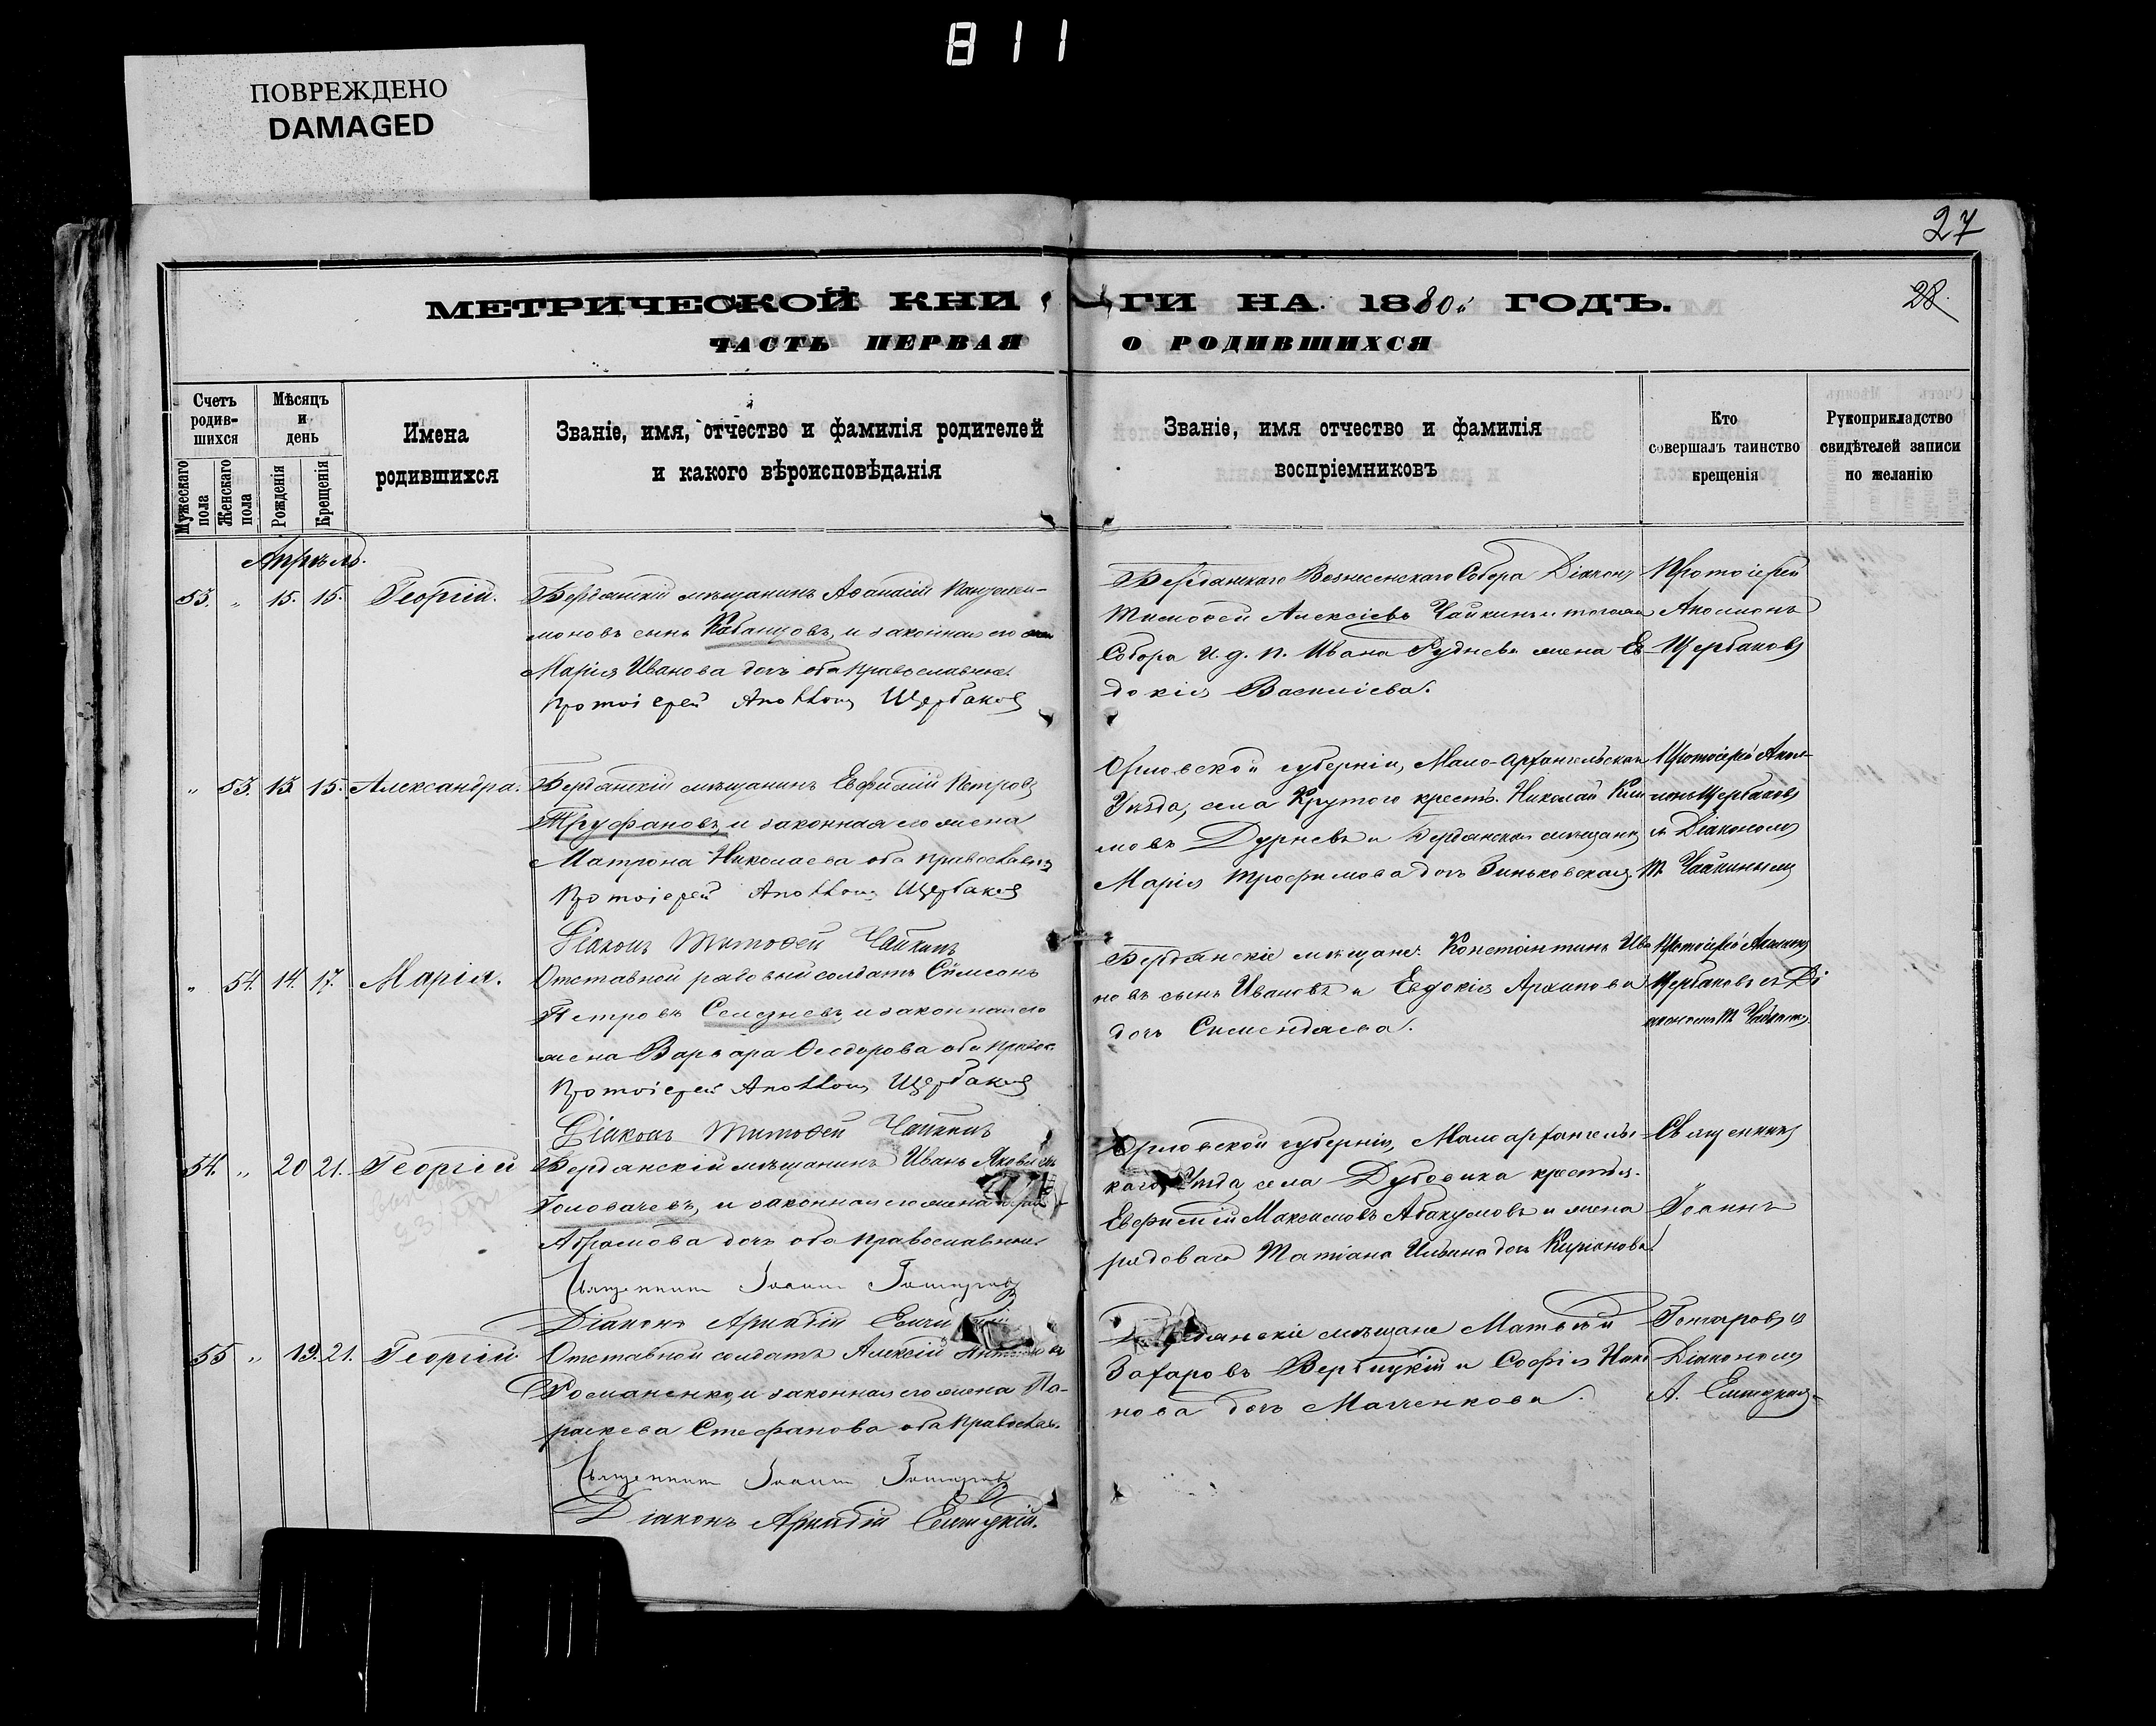 811
ПОВРЕЖДЕНО
DAMAGED
27
28.
МЕТРИЧЕСКОЙ КНИГИ НА 1880й ГОДЪ.
ЧАСТЬ ПЕРВАЯ О РОДИВШИХСЯ
Счетъ родив-шихся
Мужескаго пола
Женскаго пола
Мѣсяцъ и день
Рожденія
Крещенія
Имена родившихся
Званіе, имя, отчество и фамилія родителей
и какого вѣроисповѣданія
Званіе, имя отчество и фамилія
воспріемниковъ
Кто
совершалъ таинство
крещенія
Рукоприкладство
свидѣтелей записи
по желанію
Апрѣль.
53. " 15. 15. Георгій.
Бердянскій мѣщанинъ Аѳанасій Пантелеи-
моновъ сынъ Кабанцовъ, и законная его
Марія Иванова дочь оба православные.
Протоіерей Аполлонъ Щербаковъ
Бердянскаго Вознесенскаго Собора Діаконъ
Тимоѳей Алексіевъ Чайкинъ и тогоже
Собора и. д. п. Ивана Руднева жена Ев-
докія Василіева.
Протоіерей
Аполлонъ
Щербаковъ
" 53. 13. 15. Александра.
Бердянскій мѣщанинъ Евфимій Петровъ
Труфановъ, и законная его жена
Матрона Николаева оба православн.
Протоіерей Аполлонъ Щербаковъ
Діаконъ Тимоѳей Чайкинъ
Орловской губерніи, Мало-архангельскаго
Уѣзда, села Крутого крестъ. Николай Кли
мовъ Дурневъ и Бердянская мѣщанка
Марія Трофимова дочь Зиньковская.
Протоіерей Апол-
лонъ Щербаковъ
съ Діакономъ
Т. Чайкинымъ
" 54. 14. 17. Марія.
Отставной рядовый солдатъ Симеонъ
Петровъ Селезневъ, и законная его
жена Варвара Ѳеодорова оба правос.
Протоіерей Аполлонъ Щербаковъ
Діаконъ Тимоѳей Чайкинъ
Бердянскіе мѣщане: Константинъ Ива
новъ сынъ Ивановъ и Евдокія Архипова
дочь
Протоіерей Аполлонъ
Щербаковъ съ Ді
акономъ Т. Чайкинымъ
54. " 20 21. Георгій
Бердянскій мѣщанинъ Иванъ Яковлевъ
Головачевъ, и законная его жена
Абрамова дочь оба православные
Священникъ Іоаннъ Гонтаровъ
Діаконъ Аркадій
Орловской губерніи, Малоархангельс-
каго Уѣзда, села Дубовика крестья.
Евфимій Максимовъ Абакумовъ и жена
рядоваго Татіана Ильина дочь Киріанова.
Священникъ
Іоаннъ
55 " 19. 21. Георгій.
Отставной солдатъ Алексій
Романенко, и законная его жена Па-
раскева Стефанова оба православ.
Священникъ Іоаннъ Гонтаровъ
Діаконъ Аркадій Елитцкій.
Бердянскіе мѣщане Матвѣй
Захаровъ Вербицкій и Софія Нико
нова дочь Малченкова.
Гонтаровъ съ
Діакономъ
А.